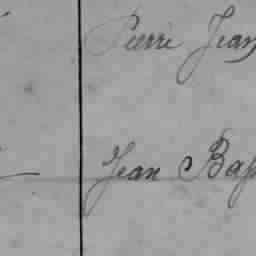 Pierre Jean
Jean Bap